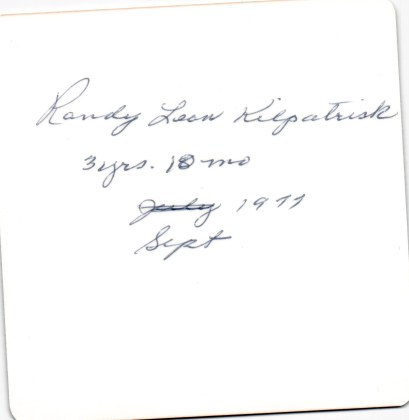 Randy Leon Kilpatrick
3yrs. 10 mo
July 1977
Sept